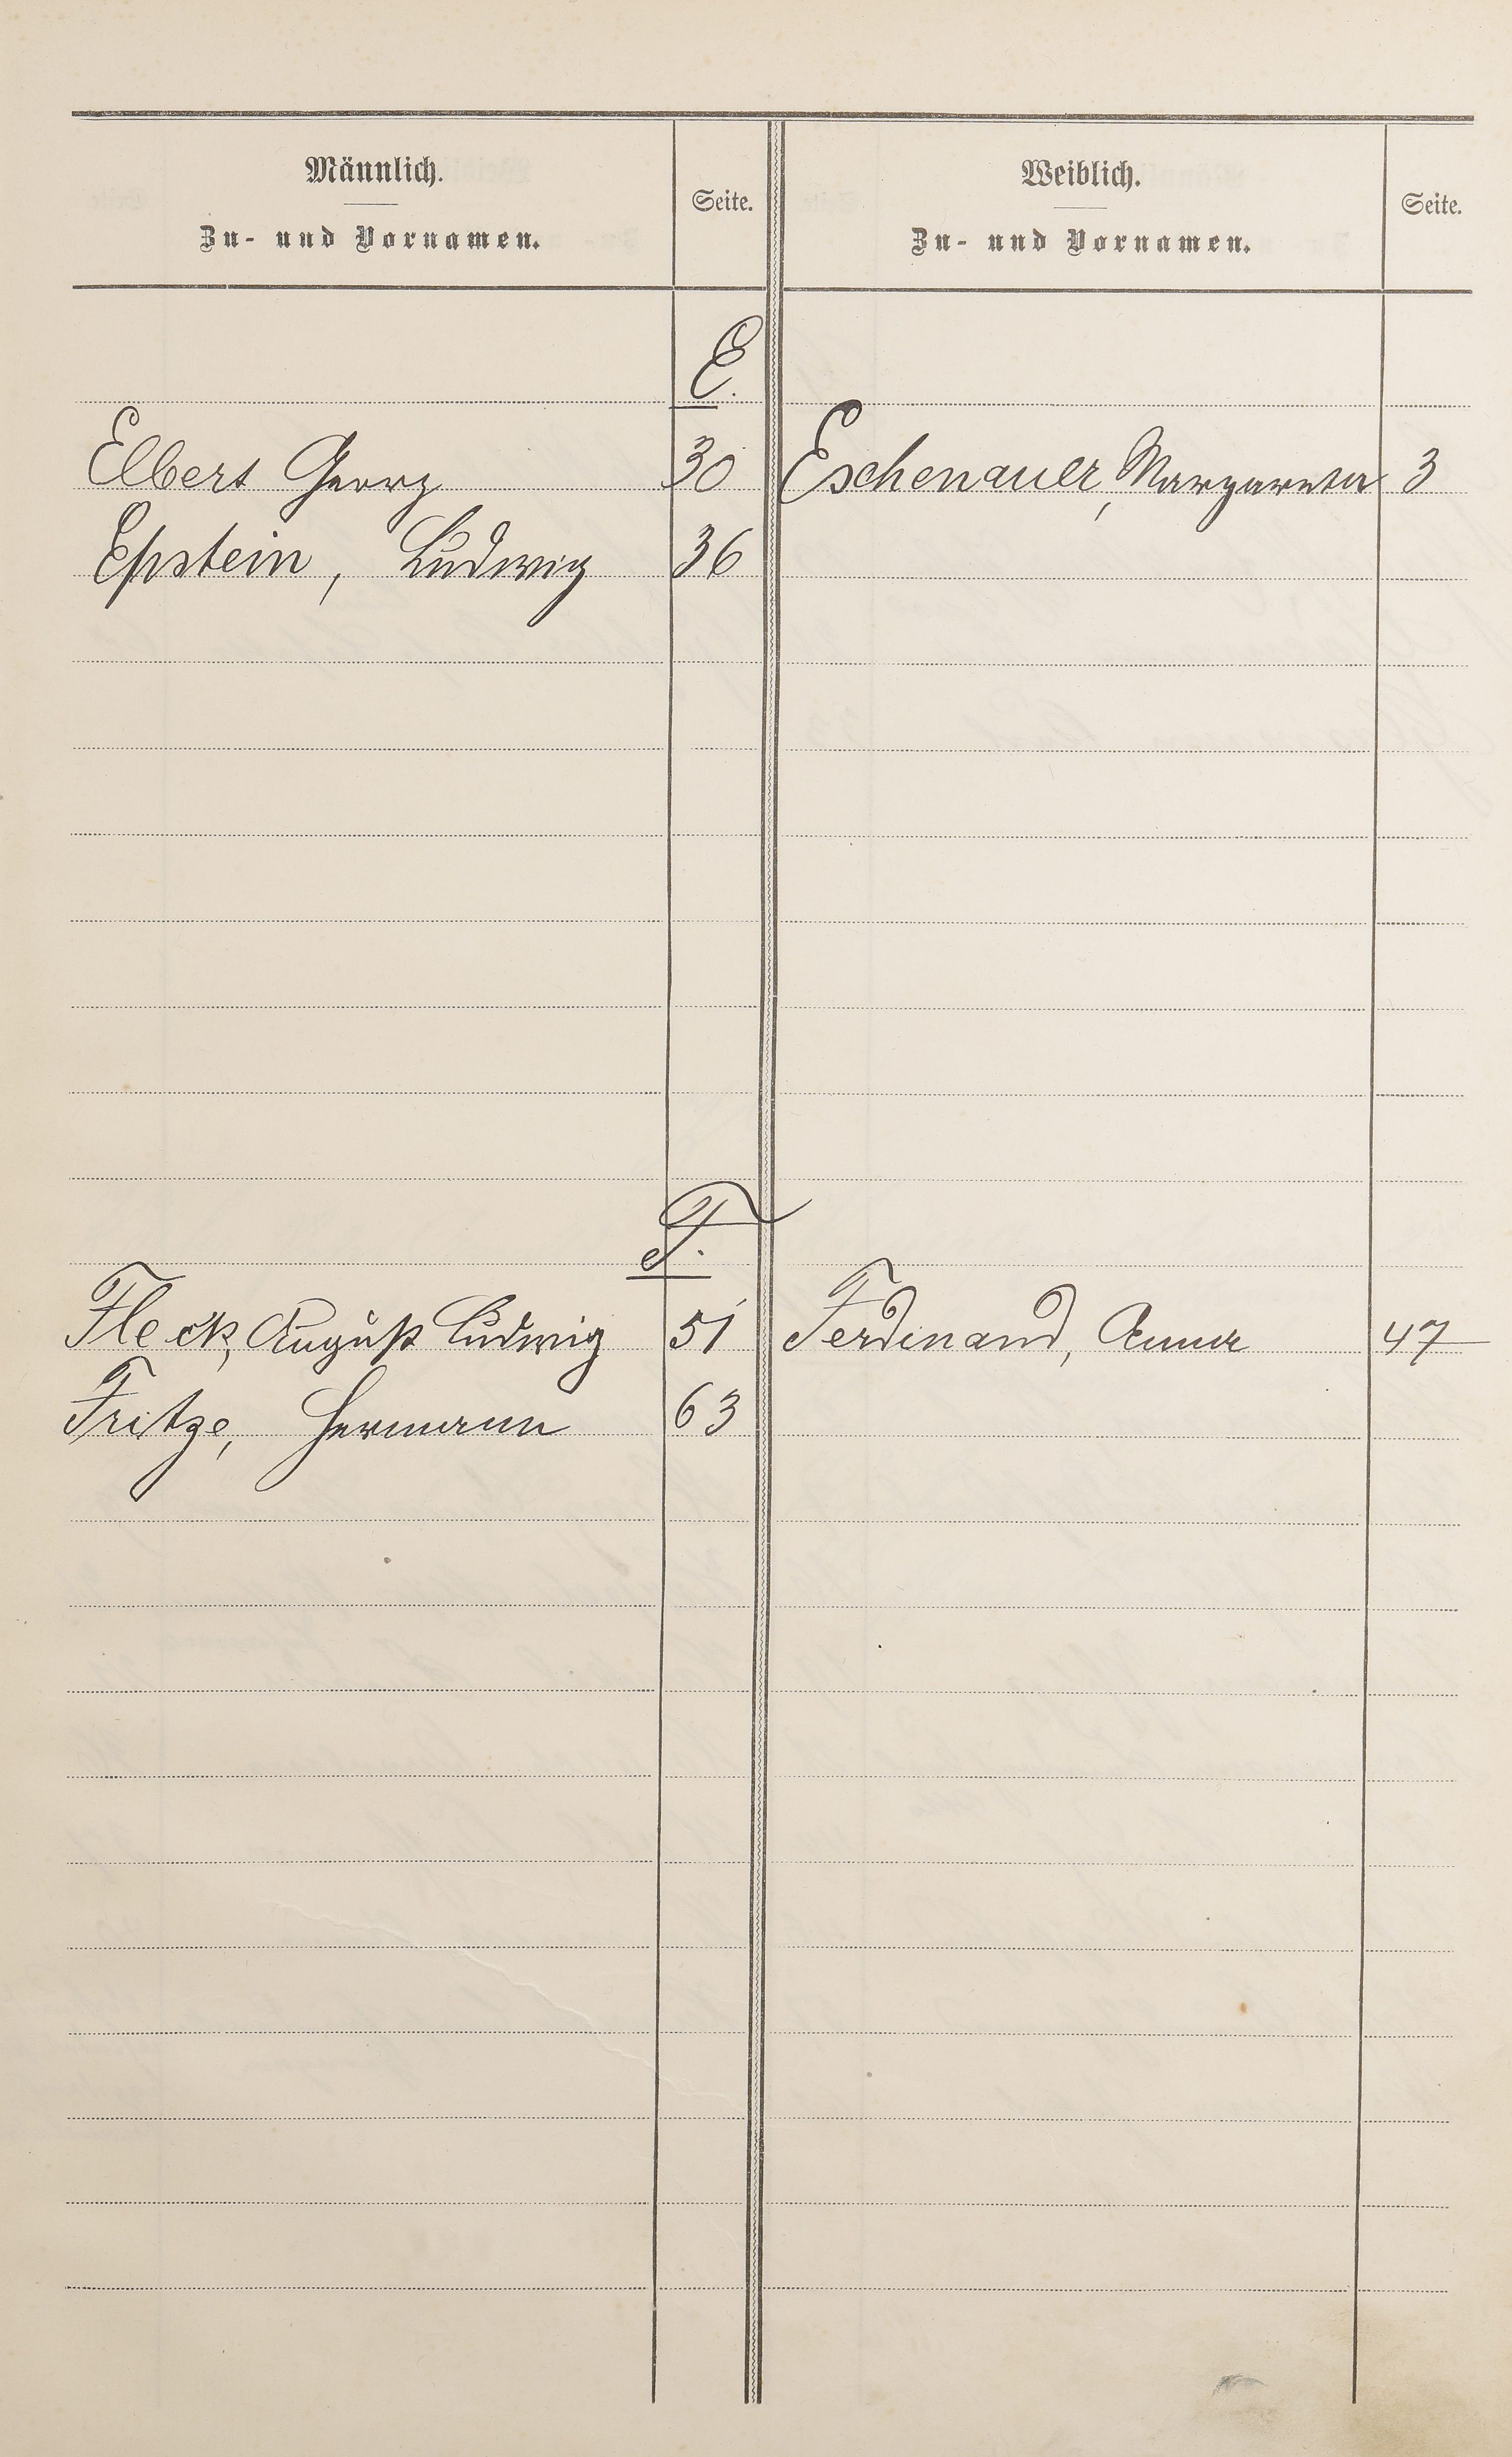 Männlich.
Zu- und Vornamen.
Seite.
Weiblich.
Zu- und Vornamen.
Seite.
E.
Elbert Georg 30 Eschenauer, Margareta 3
Epstein, Ludwig 36
F.
Fleck, August Ludwig 51 Ferdinand, Anna 47
Fritze, Hermann 63